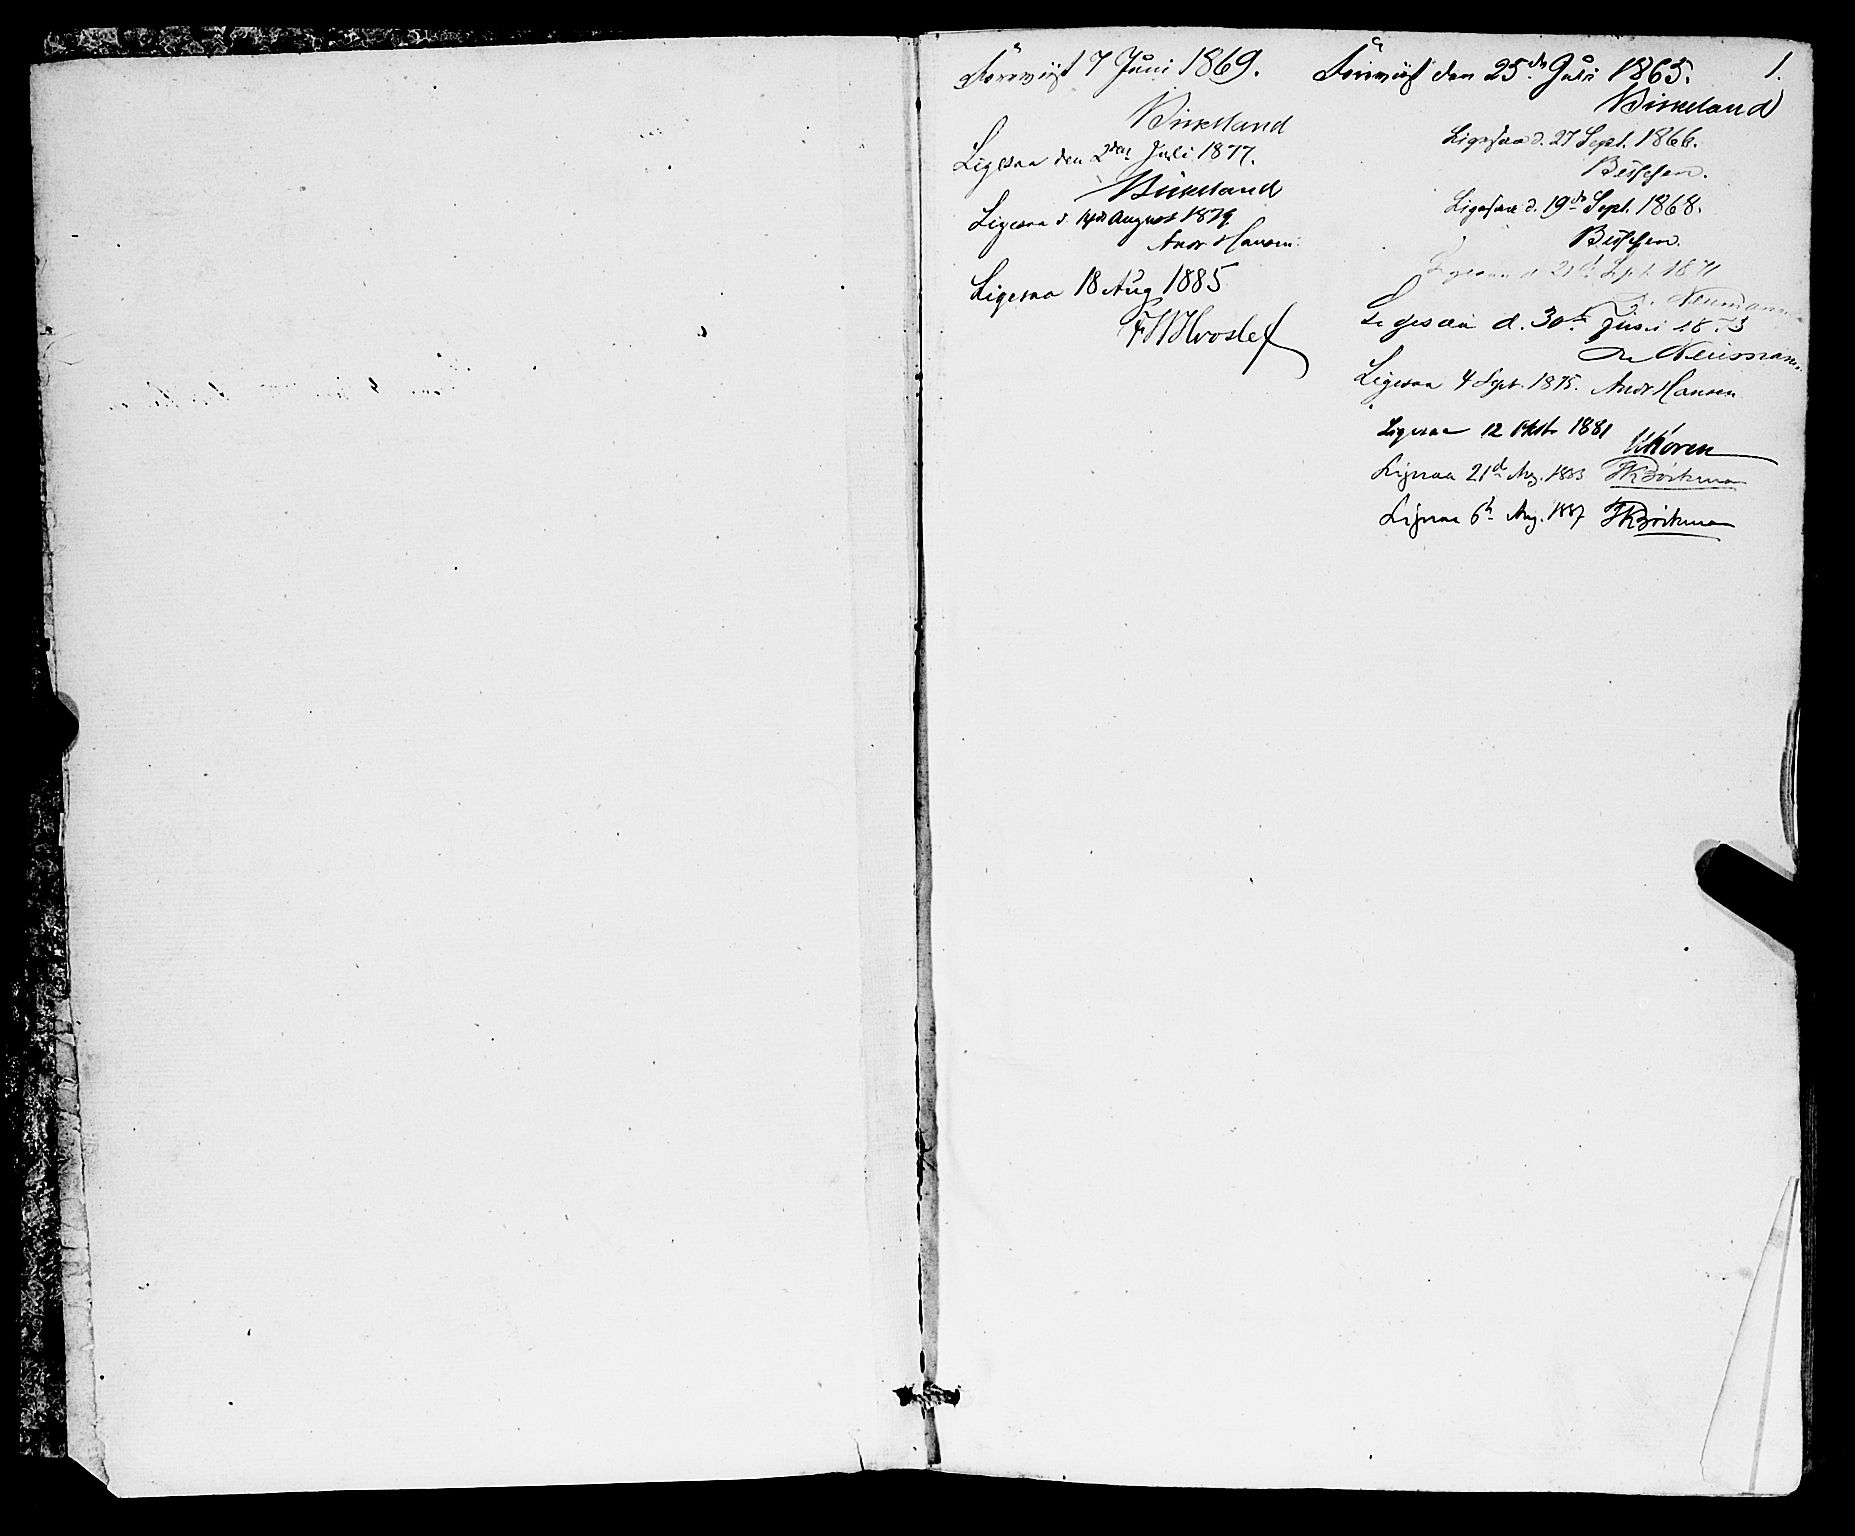 Forevist 7 Juni 1869.
Birkeland
Ligesaa den 2den Juli 1877.
Birkeland
Ligesaa d. August 1879
Andr Hansen
Ligesaa 18 Aug 1885
F W Hvoslef
1.
Forevist den 25de Juli 1865.
Birkeland
Ligesaa d. 27 Sept. 1866.
Ligesaa d. 19de Sept. 1868.
Ligesaa d. Sept. 1871
Neumann
Ligesaa d. 30te Juni 1873
Neumann
Ligesaa 4 Sept. 1875. Andr Hansen
Ligesaa 12 Oktbr 1881
Koren
Ligesaa 21de Aug. 1883 Bøckman
Ligesaa 6te Aug. 1887 Bøckman